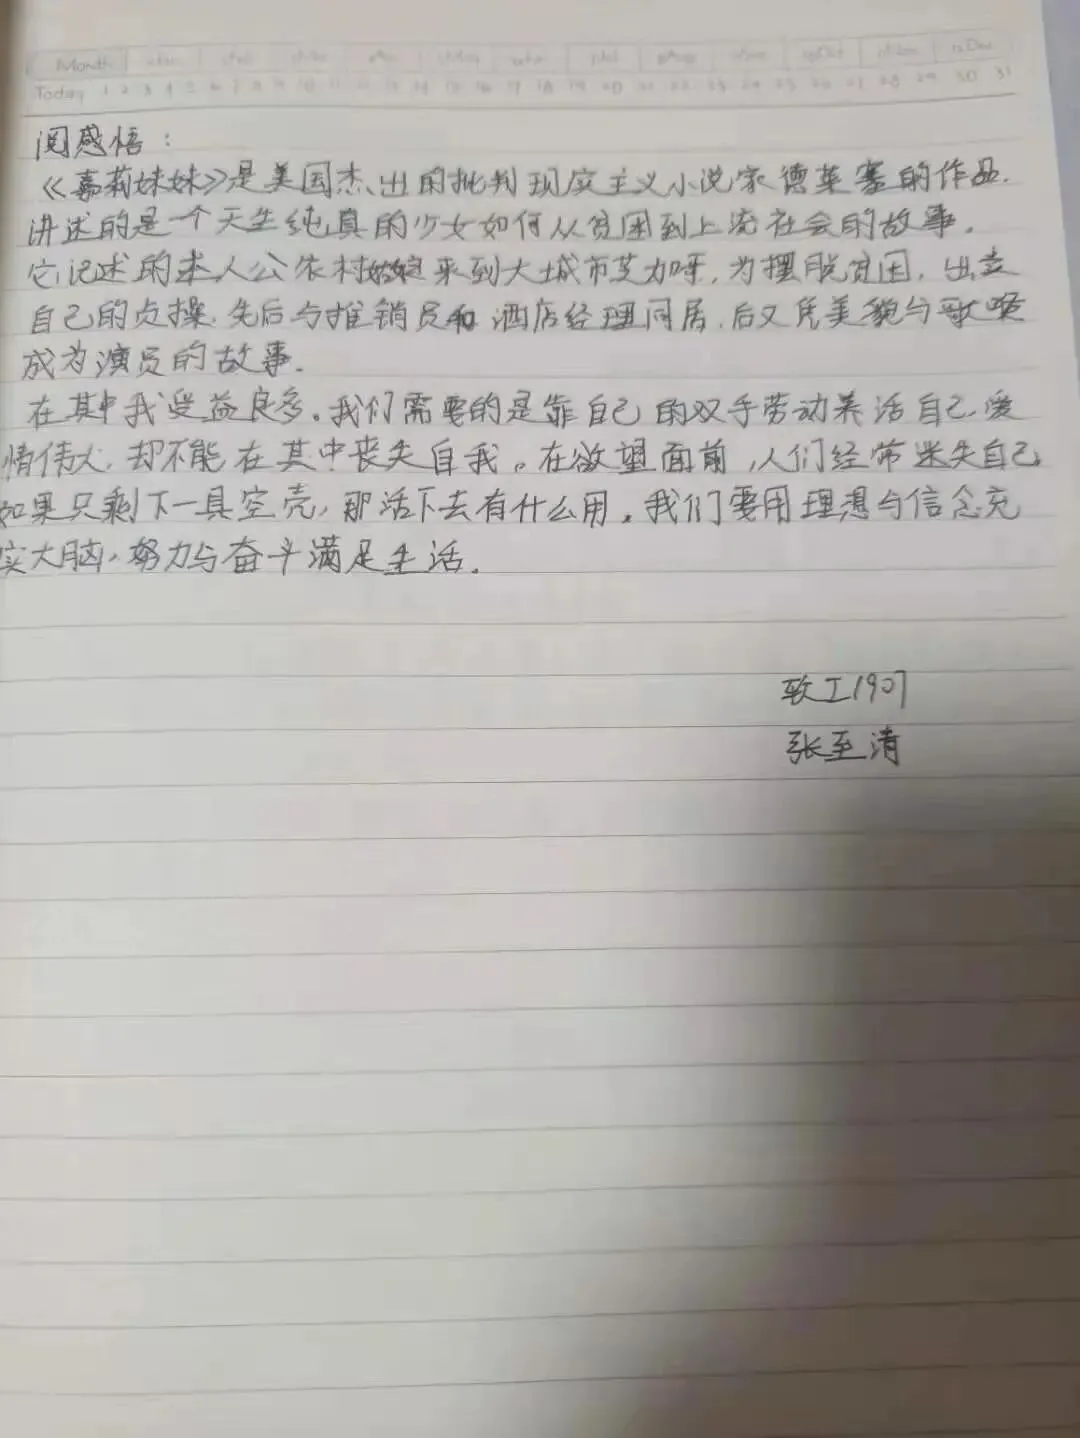 Month
Today 1 2 3 4 5 6 7 8 9 10 11 12 13 14 15 16 17 18 19 20 21 22 23 24 25 26 27 28 29 30 31
阅感悟：
《嘉莉妹妹》是美国杰出的批判现实主义小说家德莱塞的作品.
讲述的是一个天生纯真的少女如何从贫困到上流社会的故事.
它记述的主人公农村姑娘来到大城市芝加哥,为摆脱贫困,出卖
自己的贞操,先后与推销员和酒店经理同居,后又凭美貌与歌喉
成为演员的故事.
在其中我受益良多。我们需要的是靠自己的双手劳动养活自己.爱
情伟大,却不能在其中丧失自我。在欲望面前,人们经常迷失自己
如果只剩下一具空壳,那活下去有什么用。我们要用理想与信念充
实大脑,努力与奋斗满足生活.
1907
张至清